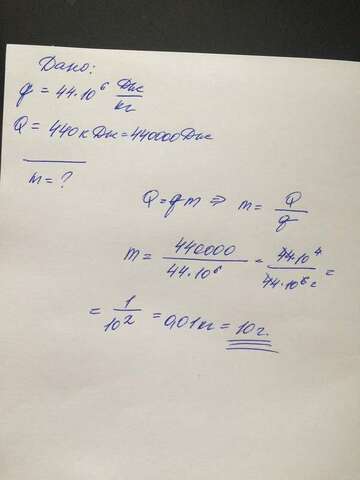 Дано:
q = 44·10⁶ Дж/кг
Q = 440 кДж = 440000 Дж
m = ?
Q = qm ⇒ m = Q/q
m = 440000/44·10⁶ = 44·10⁴/44·10⁶ =
= 1/10² = 0,01 кг = 10 г.